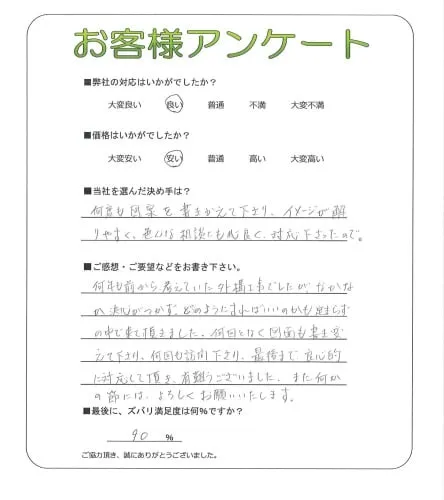 お客様アンケート
■弊社の対応はいかがでしたか？
大変良い 良い 普通 不満 大変不満
■価格はいかがでしたか？
大変安い 安い 普通 高い 大変高い
■当社を選んだ決め手は？
何度も図案を書きかえて下さり、イメージが解
りやすく、相談にも心良く、対応下さったので。
■ご感想・ご要望などをお書き下さい。
何年も前から考えていた外構工事でしたがなかな
か決心がつかず、どのようにすればいいのかも
の中で来て頂きました。何回となく図面も書き変
えて下さり、何回も訪問下さり、最後まで良心的
に対応して頂き、有難うございました。また何か
の節には、よろしくお願いいたします。
■最後に、ズバリ満足度は何%ですか？
90 %
ご協力頂き、誠にありがとうございました。